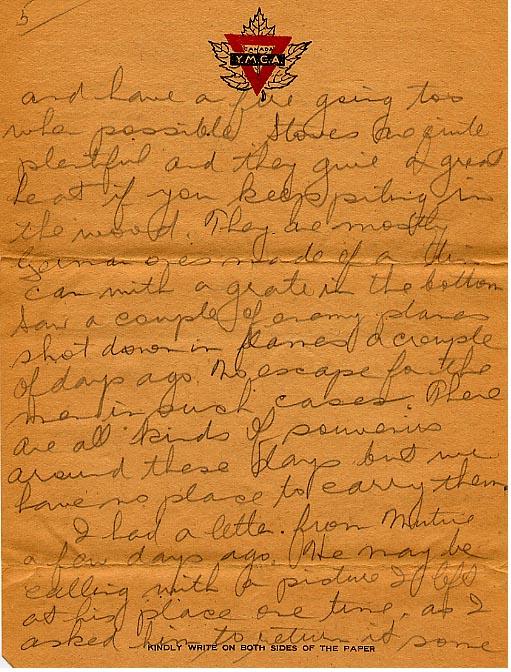 5
CANADA
Y.M.C.A.
and have a fire going too
when possible. Stoves are quite
plentiful and they give a great
heat if you keep piling in
the wood. They are mostly
German ones made of a thin
can with a grate in the bottom
Saw a couple of enemy planes
shot down in flames a couple
of days ago. No escape for the
men in such cases. There
are all kinds of souvenirs
around these days but we
have no place to carry them.
I had a letter from
a few days ago. He may be
calling with a picture I left
at his place one time, as I
asked him to return it some
KINDLY WRITE ON BOTH SIDES OF THE PAPER